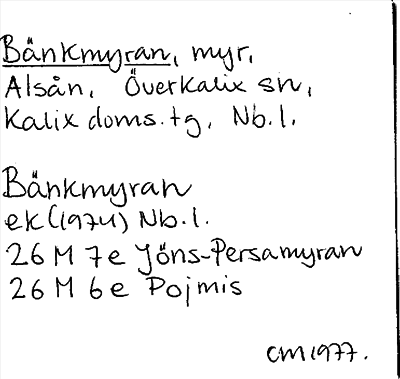 Bänkmyran, myr,
Alsån, Överkalix sn,
Kalix doms.tg, Nb.l.
Bänkmyran
ek (1974) Nb.l.
26 M 7e Jöns-Persamyran
26 M 6e Pojmis
CM 1977.